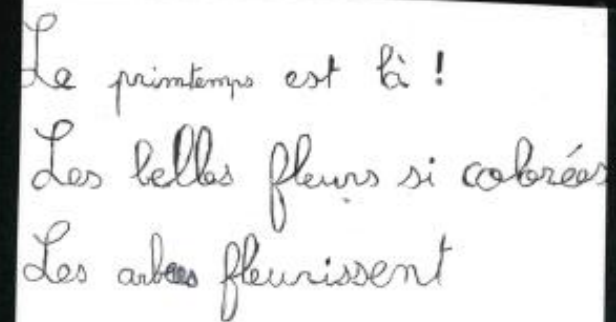 Le printemps est là !
Les belles fleurs si colorées
Les arbres fleurissent